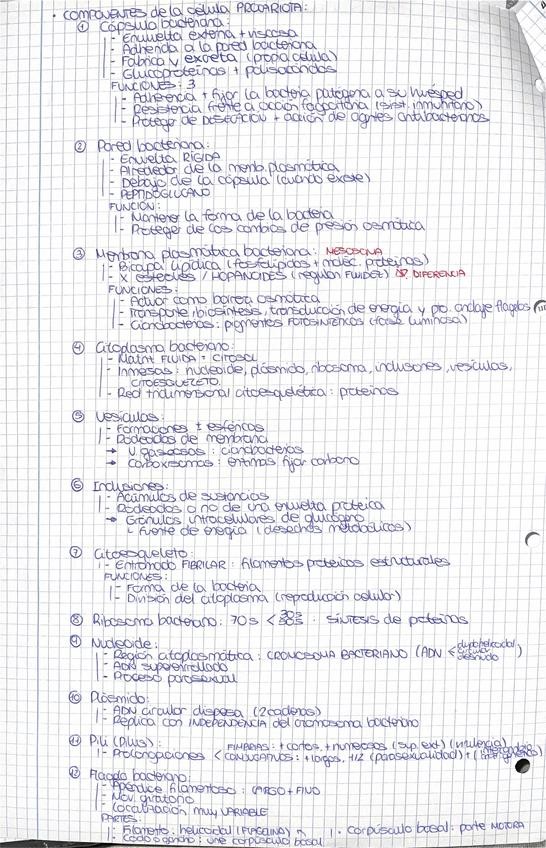 • COMPONENTES de la célula PROCARIOTA:
① Cápsula bacteriana:
- Envuelta externa + viscosa
- Adherida a la pared bacteriana
- Fabrica y excreta (propia célula)
- Glucoproteínas + polisacáridos
FUNCIONES: 3
- Adherencia + fijar la bacteria patógena a su huésped
- Resistencia frente a acción fagocitaria (sist. inmunitario)
- Protege de DESECACIÓN + acción de agentes antibacterianos
② Pared bacteriana:
- Envuelta RÍGIDA
- Alrededor de la memb. plasmática
- Debajo de la cápsula (cuando existe)
- PEPTIDOGLUCANO
FUNCIÓN:
- Mantener la forma de la bacteria
- Proteger de los cambios de presión osmótica
③ Membrana plasmática bacteriana: MESOSOMA
- Bicapa lipídica (fosfolípidos + moléc. proteínas)
- X esteroles / HOPANOIDES (regulan FLUIDEZ) DIFERENCIA
FUNCIONES:
- Actuar como barrera osmótica
- Transporte, biosíntesis, transducción de energía y pto. anclaje flagelos
- Cianobacterias: pigmentos FOTOSINTÉTICOS (fase luminosa)
④ Citoplasma bacteriano:
- Matriz FLUIDA = CITOSOL
- Inmersas: nucleoide, plásmido, ribosoma, inclusiones, vesículas,
CITOESQUELETO.
- Red tridimensional citoesquelética: proteínas
⑤ Vesículas:
- Formaciones ± esféricas
- Rodeadas de membrana
→ V. gaseosas: cianobacterias
→ Carboxisomas: enzimas fijar carbono
⑥ Inclusiones:
- Acúmulos de sustancias
- Rodeados o no de una envuelta proteica
→ Gránulos intracelulares de glucógeno
↳ fuente de energía (desechos metabólicos)
⑦ Citoesqueleto:
- Entramado FIBRILAR: filamentos proteicos estructurales
FUNCIONES:
- Forma de la bacteria
- División del citoplasma (reproducción celular)
⑧ Ribosoma bacteriano: 70s < 30s 50s : SÍNTESIS de proteínas
⑨ Nucleoide:
- Región citoplasmática: CROMOSOMA BACTERIANO (ADN < duplohelicoidal circular desnudo)
- ADN superenrollado
- Proceso parasexual
⑩ Plásmido:
- ADN circular disperso (2 cadenas)
- Replica con INDEPENDENCIA del cromosoma bacteriano
⑪ Pili (Pilus): FIMBRIAS: + cortos, + numerosos (sup. ext) (virulencia)
- Prolongaciones < CONJUGATIVOS: + largos, 1/2 (parasexualidad) + (intercambio
⑫ Flagelo bacteriano:
- Apéndice filamentoso: LARGO + FINO
- Mov. giratorio
- Localización muy VARIABLE
PARTES:
- Filamento: helicoidal (FLAGELINA) - Corpúsculo basal: parte MOTORA
- Codo o gancho: une corpúsculo basal